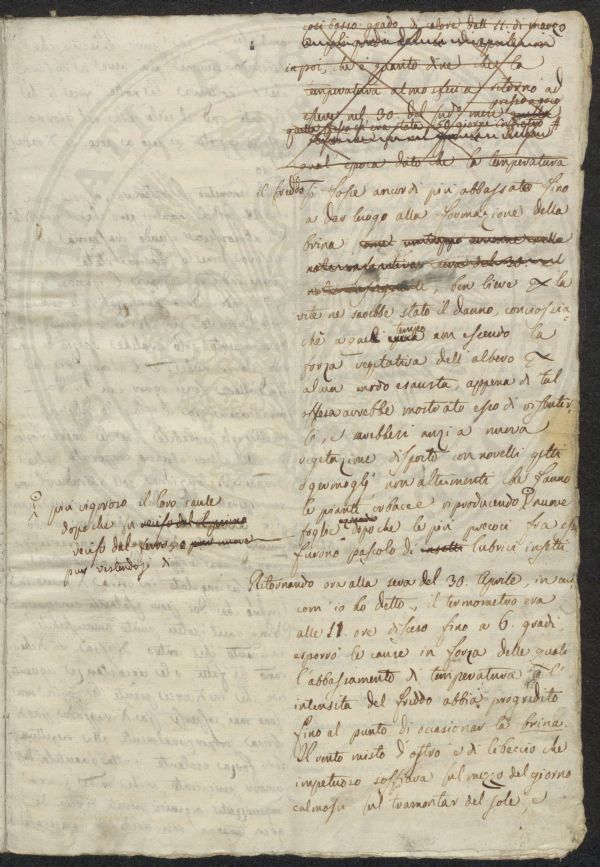 così basso grado di calore dall' 11. di marzo
in poi, che è quanto dire che la
temperatura atmosferica ritornò ad
essere nel 30. del
qual epoca dato che la temperatura
il freddo si fosse ancor di più abbassato fino
a dar luogo alla formazione della
brina
ben lieve la
vite ne sarebbe stato il danno, conciossia-
chè a quel tempo non essendo la
forza vegetativa dell' albero
alcun modo esausta, appena di tal
offesa avrebbe mostrato esso di risentir
si, e sarebbesi anzi a nuova
vegetazione disposto con novelli getti
o germogli non altrimenti che fanno
le piante erbacee riproducendo nuove
foglie dopo che le più precoci fra esse
furono pascolo di insetti lubrici insetti.
più vigoroso il loro caule
dopo che fu reciso dal il primo
reciso dal ferro, e può nuove
pur vestendosi di
Ritornando ora alla sera del 30. Aprile, in cui
com' io ho detto, il termometro era
alle 11. ore disceso fino a 6. gradi
esporrò le cause in forza delle quali
l'abbassamento di temperatura e l'
intensità del freddo abbia progredito
fino al punto di ocasionar la brina.
Il vento misto d'ostro e di libeccio che
impetuoso soffiava sul mezzo del giorno
calmosi sul tramontar del sole, e